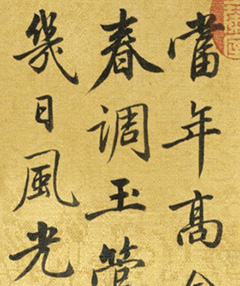 當年高
春調玉管
幾日風光